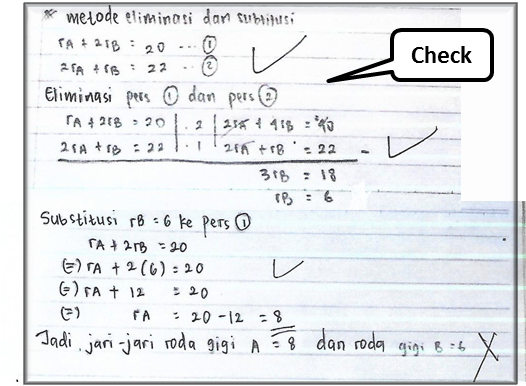 * metode eliminasi dan subtitusi
rA + 2rB = 20 ... ①
2rA + rB = 22 ... ②
Check
Eliminasi pers ① dan pers ②
rA + 2rB = 20 | . 2 | 2rA + 4rB = 40
2rA + rB = 22 | . 1 | 2rA + rB = 22 -
3rB = 18
rB = 6
Substitusi rB = 6 ke pers ①
rA + 2rB = 20
(=) rA + 2(6) = 20
(=) rA + 12 = 20
(=) rA = 20 - 12 = 8
Jadi, jari-jari roda gigi A = 8 dan roda gigi B = 6